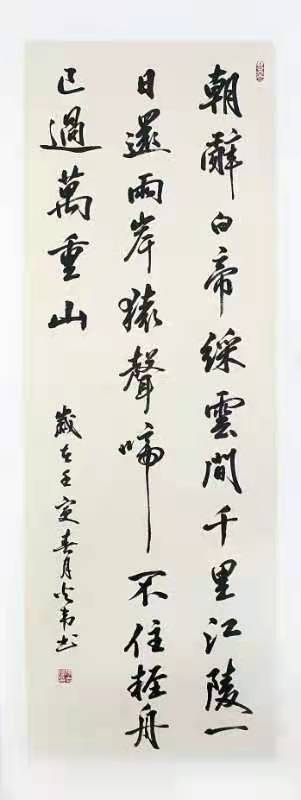 朝辭白帝綵雲間千里江陵一
日還兩岸猿聲啼不住輕舟
已過萬重山
歲在壬寅春月韦书